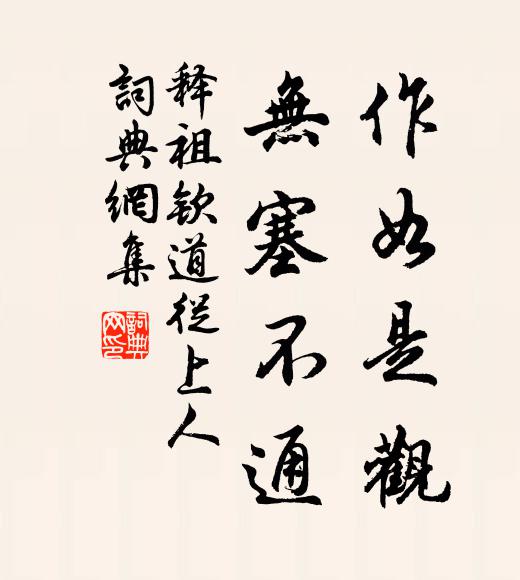 作如是觀
無塞不通
释祖钦道從上人
詞典網集
詞典
网印